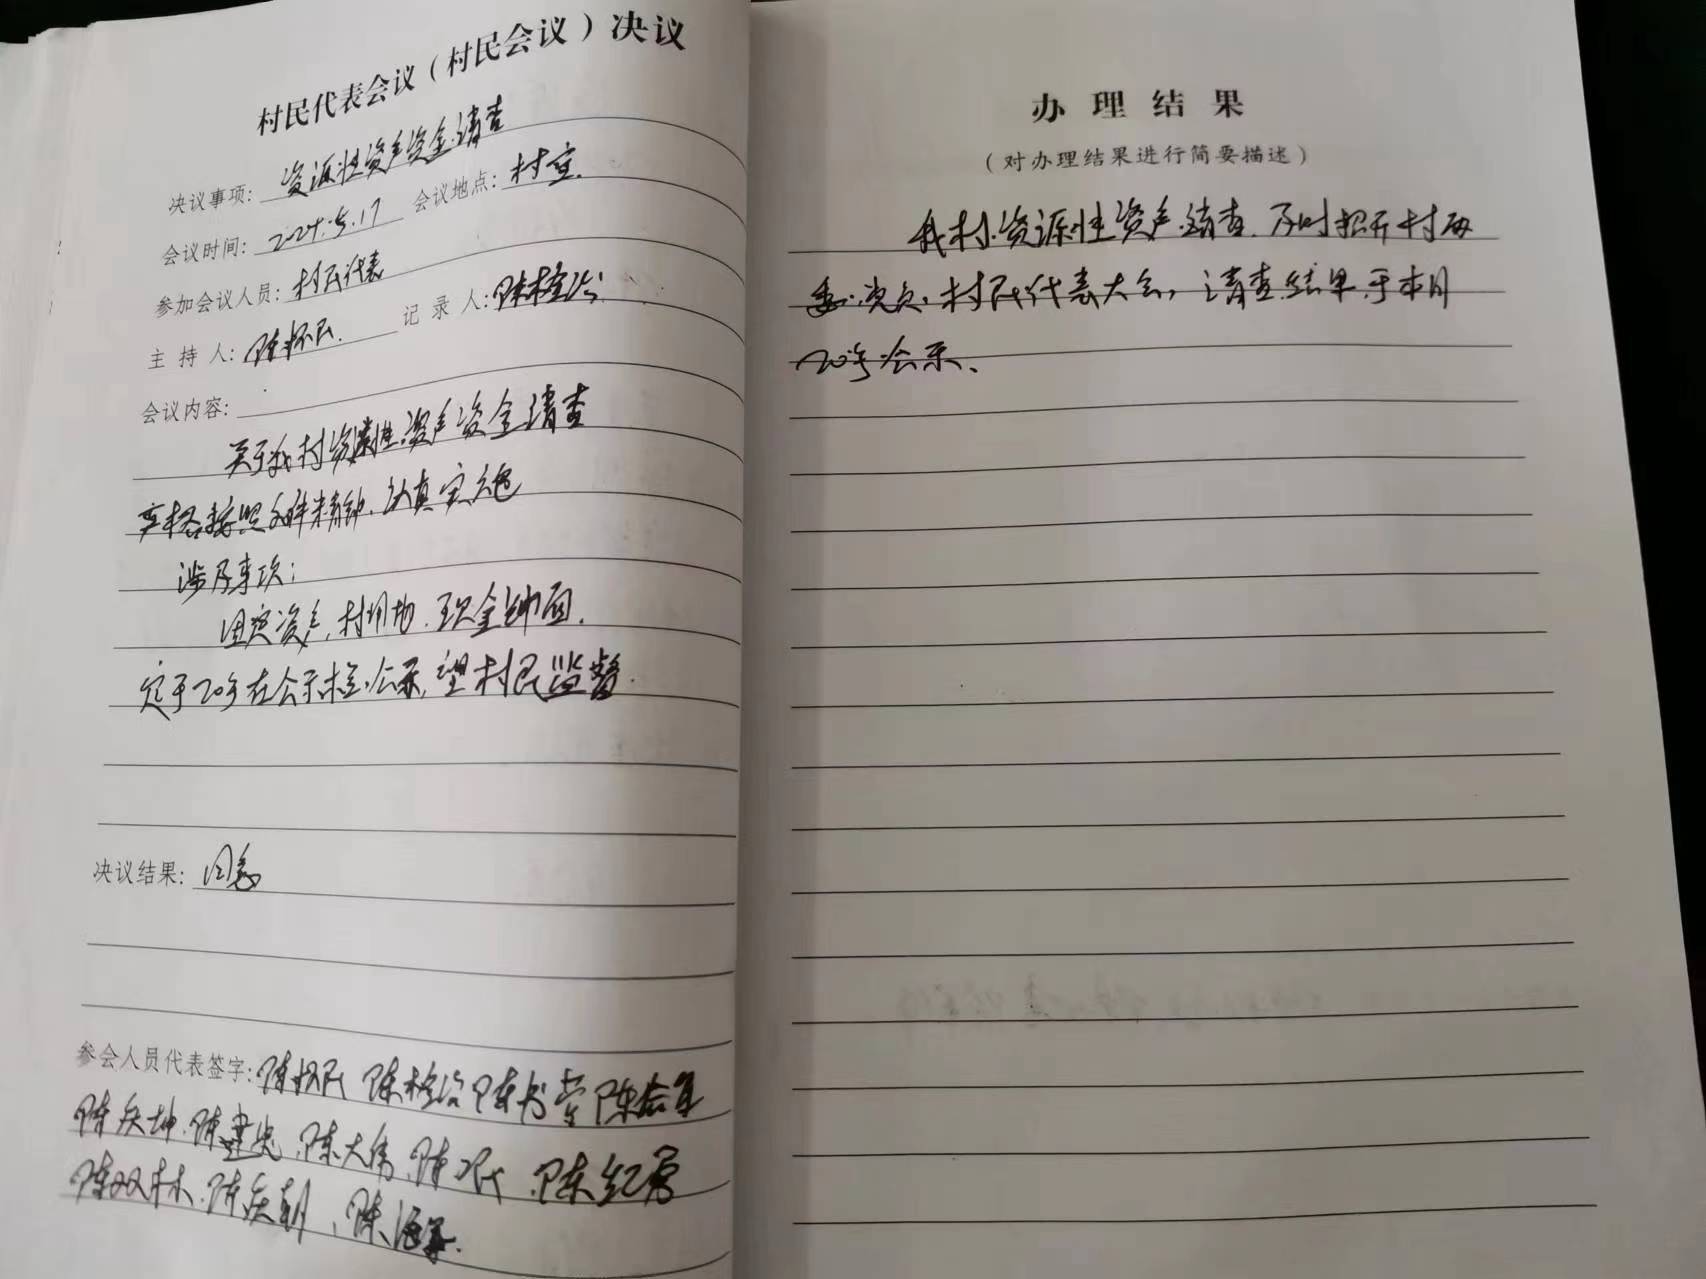 村民代表会议（村民会议）决议
决议事项: 资源性资产资金清查
会议时间: 2024.5.17 会议地点: 村室.
参加会议人员: 村民代表
主 持 人: 陈怀民. 记 录 人: 陈栓治
会议内容:
关于我村资源性资产资金清查
严格按照文件精神.认真实施
涉及事项:
固定资产,村用地.现金帐面.
定于20号在公示栏公示,望村民监督.
决议结果: 同意
参会人员代表签字: 陈怀民 陈栓治 陈书营
陈庆坤.陈建忠、陈大伟、陈红勇
陈双林.陈庆朝、陈海
办理结果
（对办理结果进行简要描述）
我村资源性资产清查.及时招开村两
委.党员.村民代表大会，清查结果于本月
20号公示、